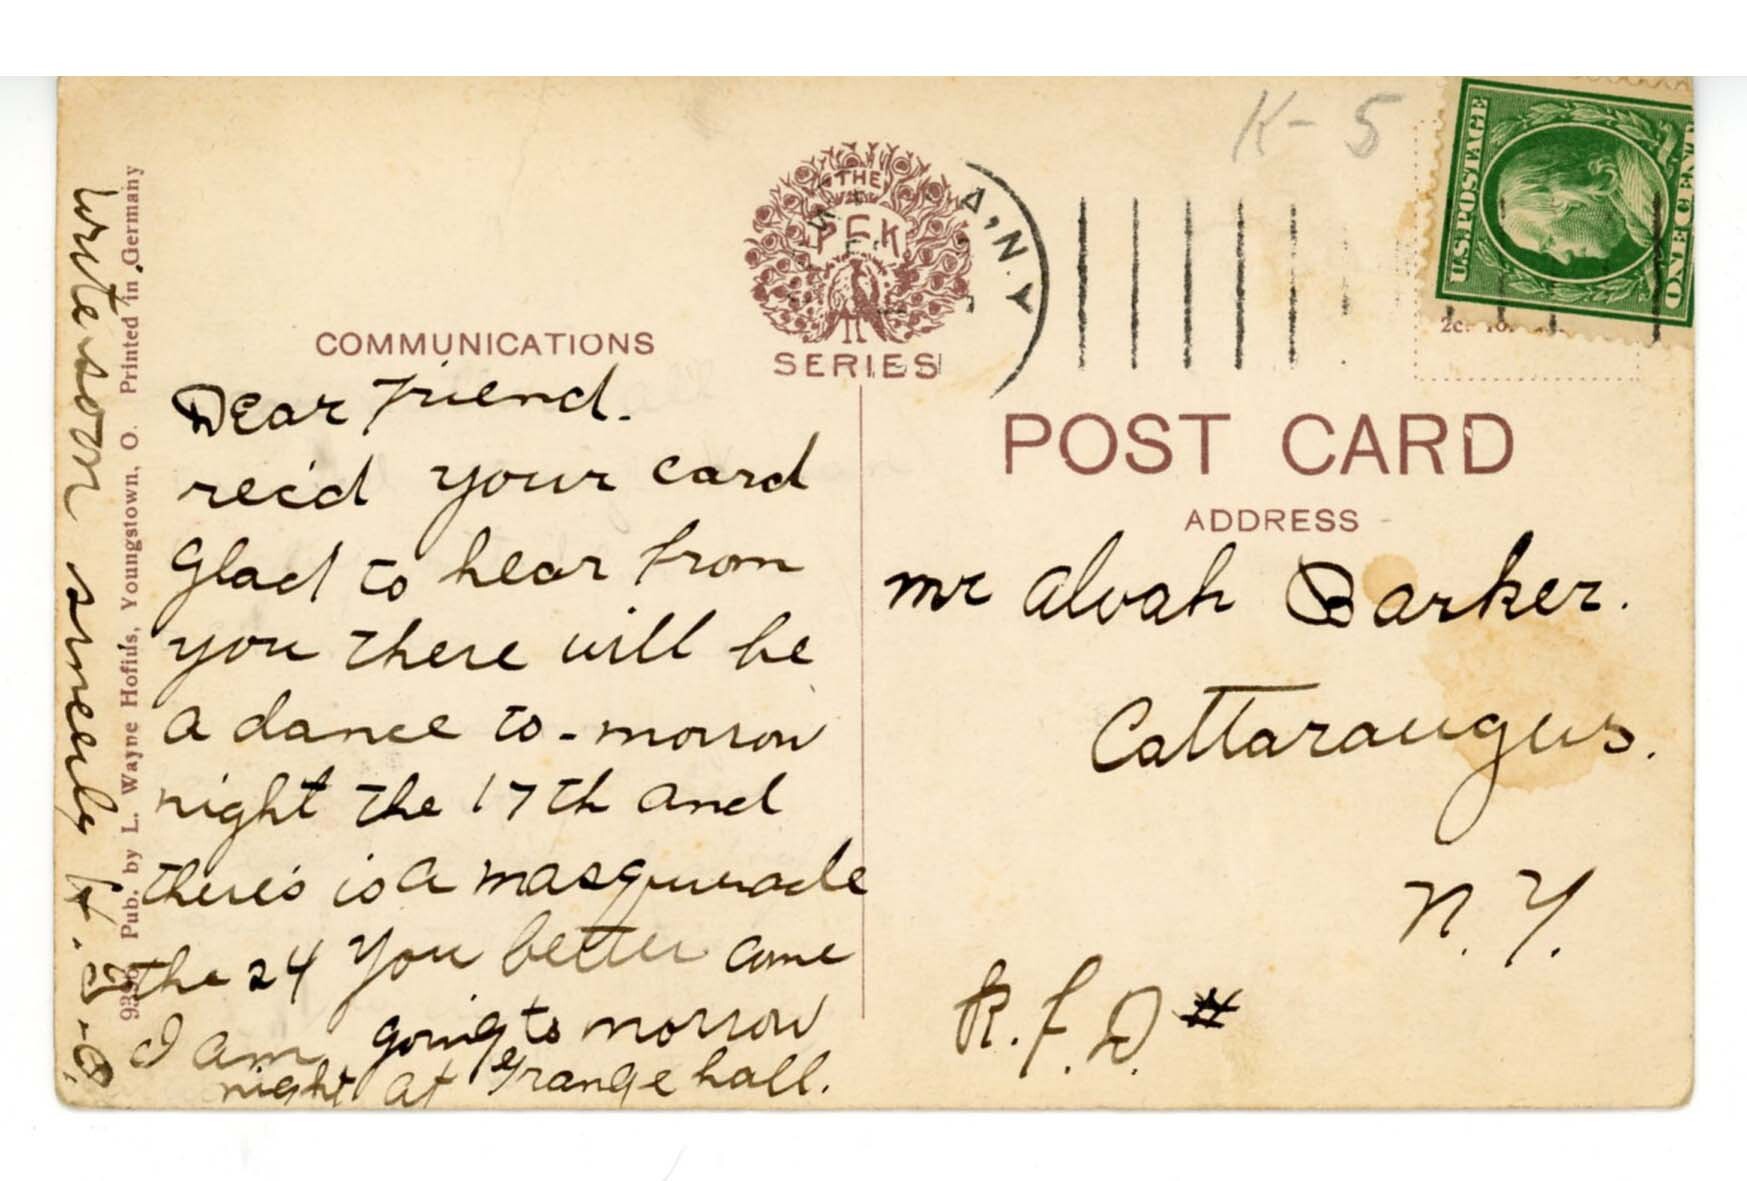 K-5
U.S.POSTAGE
ONE CENT
THE
PFK
SERIES
A, N.Y
COMMUNICATIONS
Dear Friend.
rec'd your card
Glad to hear from
you there will be
a dance to-morrow
night the 17th and
there's is a masqurade
the 24 you better come
I am going to morrow
night at Grange hall.
Write soon
POST CARD
ADDRESS
Mr Alvah Barker.
Cattaraugus.
N.Y.
R.F.D #
Pub. by L. Wayne Hofius, Youngstown, O. Printed in Germany